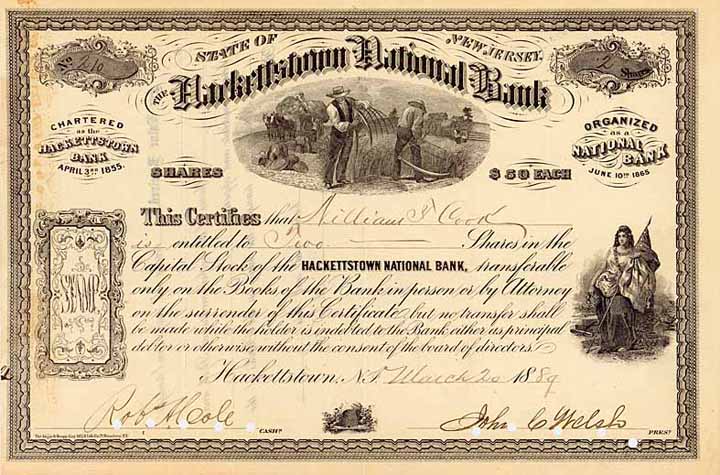 STATE OF NEW JERSEY.
No 40
2 Shares
THE Hackettstown National Bank
CHARTERED
as the
HACKETTSTOWN
BANK
APRIL 3RD 1855.
ORGANIZED
as a
NATIONAL BANK
JUNE 10TH 1865
SHARES
$50 EACH
This Certifies that William F Cook
is entitled to Two Shares in the
Capital Stock of the HACKETTSTOWN NATIONAL BANK, transferable
only on the Books of the Bank in person or by Attorney
on the surrender of this Certificate, but no transfer shall
be made while the holder is indebted to the Bank either as principal
debtor or otherwise, without the consent of the board of directors.
STAMP
Hackettstown, N.J. March 20 1889
Robt Cole CASHR
John C Welsh PREST